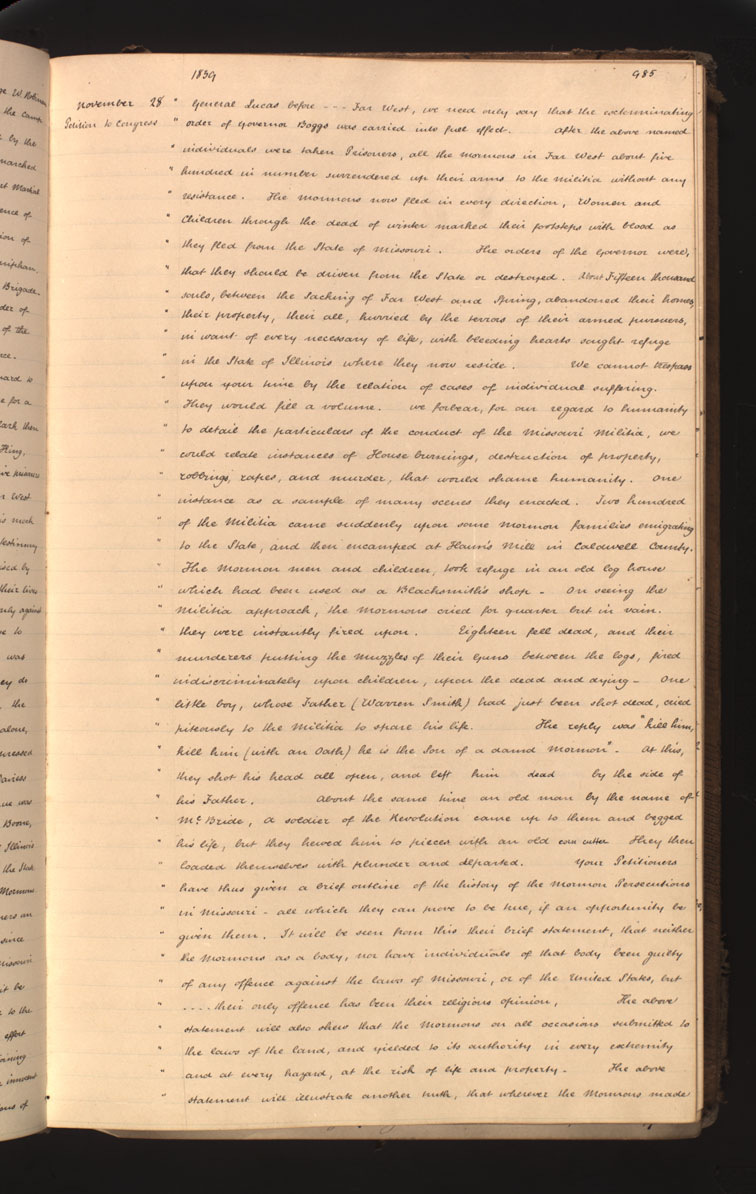 1839 985
November 28 " General Lucas before --- Far West, we need only say that the exterminating
Petition to Congress " order of Governor Boggs was carried into full effect. After the above named
" individuals were taken Prisoners, all the Mormons in Far West about five
" hundred in number surrendered up their arms to the Militia without any
" resistance. The Mormons now fled in every direction, Women and
" Children through the dead of winter marked their footsteps with blood as
" they fled from the State of Missouri. The orders of the Governor were,
" that they should be driven from the State or destroyed. About Fifteen thousand
" souls, between the Sacking of Far West and Spring, abandoned their homes,
" their property, their all, hurried by the terrors of their armed pursuers,
" in want of every necessary of life, with bleeding hearts sought refuge
" in the State of Illinois where they now reside. We cannot trespass
" upon your time by the relation of cases of individual suffering.
" They would fill a volume. We forbear, for our regard to humanity
" to detail the particulars of the conduct of the Missouri Militia, we
" could relate instances of House burnings, destruction of property,
" robbings, rapes, and murder, that would shame humanity. One
" instance as a sample of many scenes they enacted. Two hundred
" of the Militia came suddenly upon some Mormon families emigrating
" to the State, and then encamped at Haun's Mill in Caldwell County.
" The Mormon men and children, took refuge in an old log house
" which had been used as a Blacksmith's shop - On seeing the
" Militia approach, the Mormons cried for quarter but in vain.
" they were instantly fired upon. Eighteen fell dead, and their
" murderers putting the muzzles of their Guns between the logs, fired
" indiscriminately upon children, upon the dead and dying - One
" little boy, whose Father (Warren Smith) had just been shot dead, cried
" piteously to the Militia to spare his life. The reply was "kill him,
" kill him (with an Oath) he is the Son of a damd Mormon". At this,
" they shot his head all open, and left him dead by the side of
" his Father. About the same time an old man by the name of
" Mc. Bride, a soldier of the Revolution came up to them and begged
" his life, but they hewed him to pieces with an old corn cutter They then
" loaded themselves with plunder and departed. Your Petitioners
" have thus given a brief outline of the history of the Mormon Persecutions
" in Missouri - all which they can prove to be true, if an opportunity be
" given them. It will be seen from this their brief statement, that neither
" the Mormons as a body, nor have individuals of that body been guilty
" of any offence against the laws of Missouri, or of the United States, but
" .... their only offence has been their religious opinion, The above
" statement will also shew that the Mormons on all occasions submitted to
" the laws of the land, and yielded to its authority in every extremity
" and at every hazard, at the risk of life and property. The above
" statement will illustrate another truth, that wherever the Mormons made